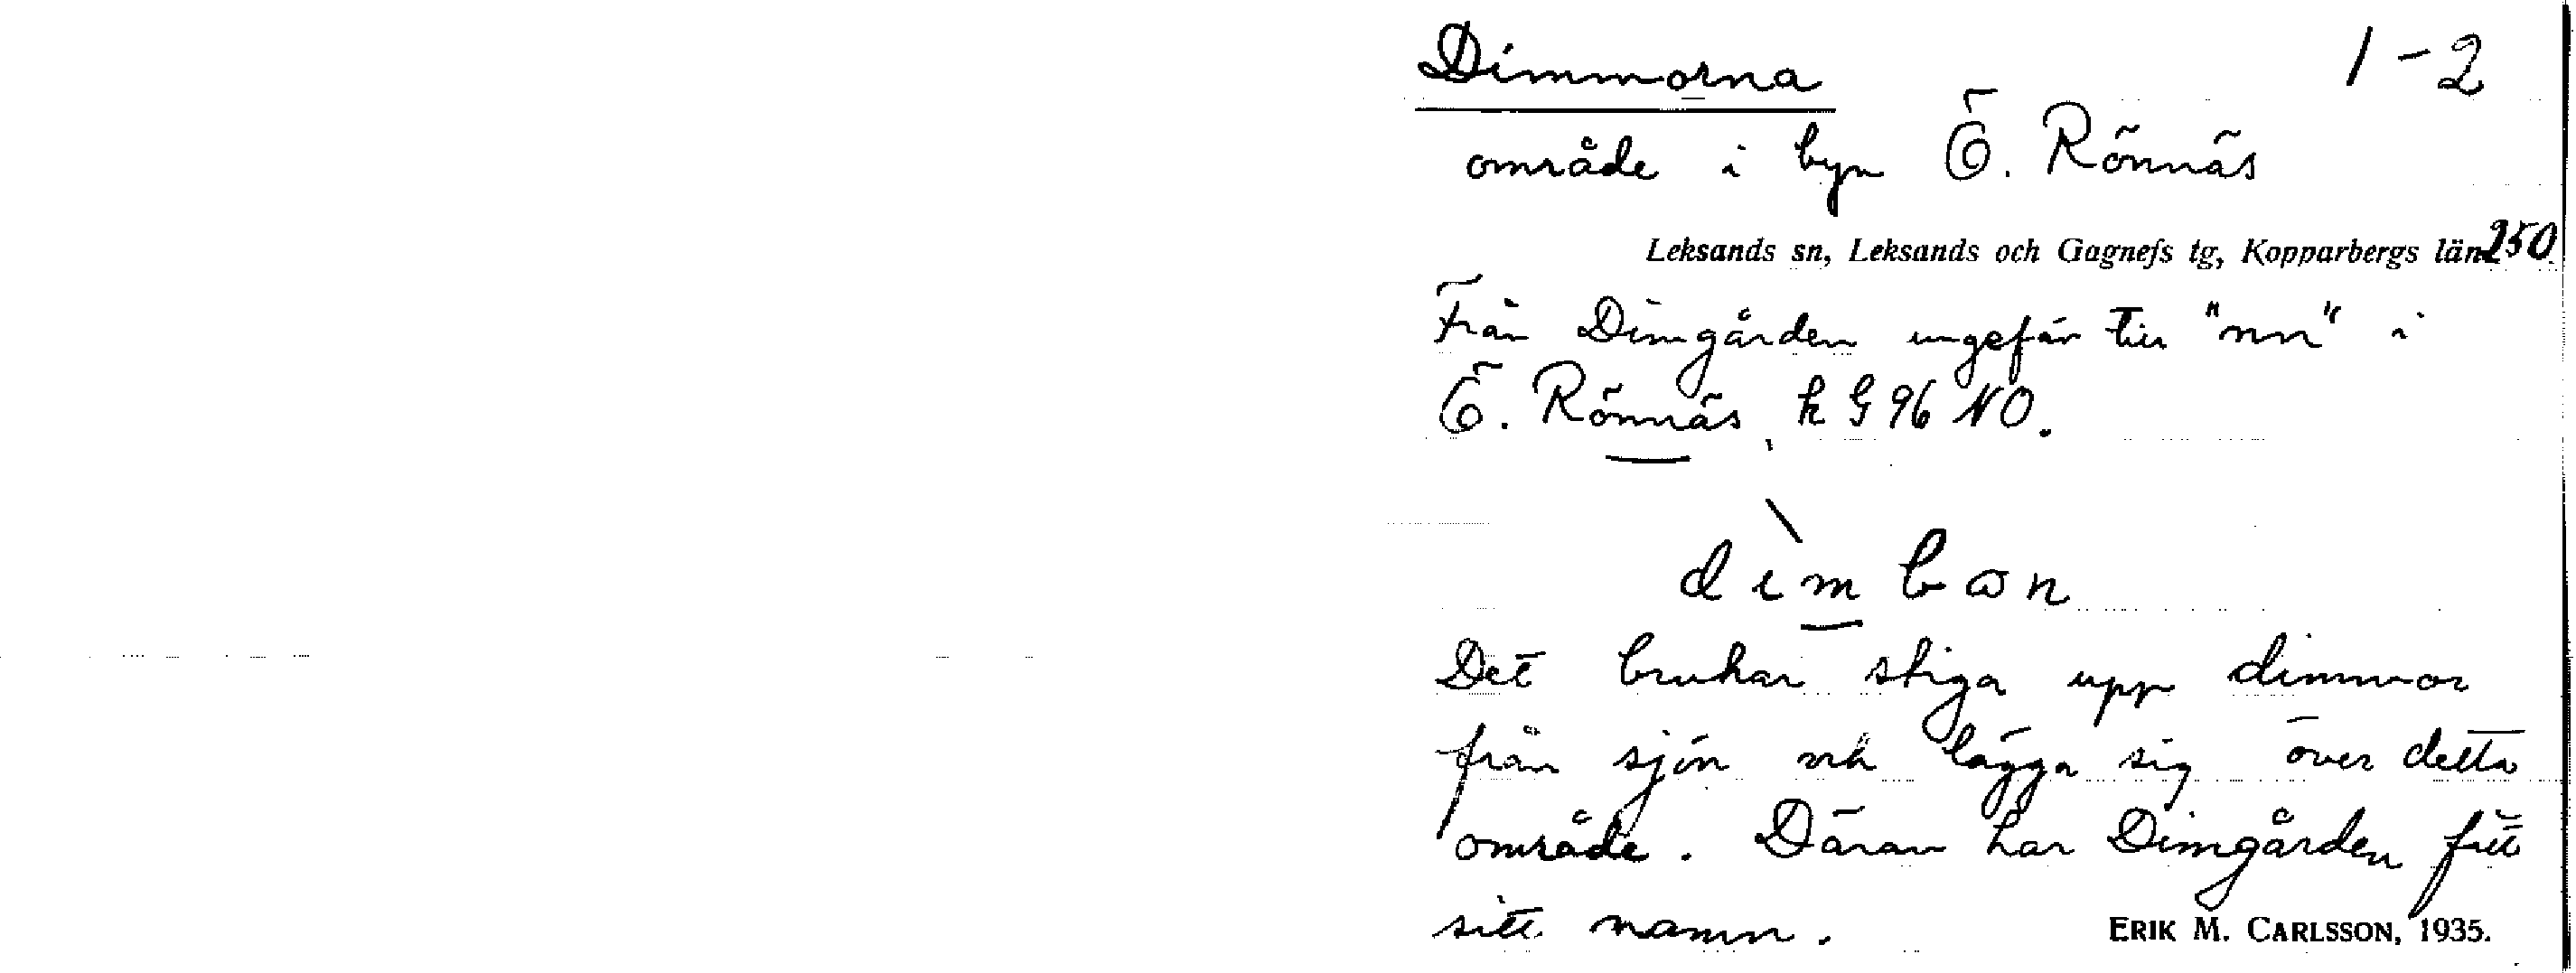 Dimmorna 1-2
område i byn Ö. Rönnäs
Leksands sn, Leksands och Gagnefs tg, Kopparbergs län 250.
Från Dimgården ungefär till "nn" i
Ö. Rönnäs, k G 96 NO.
dìmban
Det brukar stiga upp dimmor
från sjön och lägga sig över detta
område. Därav har Dimgården fått
sitt namn. ERIK M. CARLSSON, 1935.